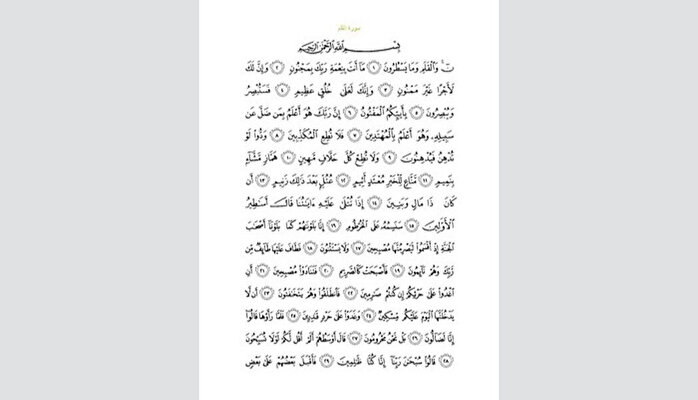 سورة القلم
بِسْمِ اللَّهِ الرَّحْمَٰنِ الرَّحِيمِ
نٓ ۚ وَالْقَلَمِ وَمَا يَسْطُرُونَ ١ مَا أَنتَ بِنِعْمَةِ رَبِّكَ بِمَجْنُونٍ ٢ وَإِنَّ لَكَ
لَأَجْرًا غَيْرَ مَمْنُونٍ ٣ وَإِنَّكَ لَعَلَىٰ خُلُقٍ عَظِيمٍ ٤ فَسَتُبْصِرُ
وَيُبْصِرُونَ ٥ بِأَييِّكُمُ الْمَفْتُونُ ٦ إِنَّ رَبَّكَ هُوَ أَعْلَمُ بِمَن ضَلَّ عَن
سَبِيلِهِ وَهُوَ أَعْلَمُ بِالْمُهْتَدِينَ ٧ فَلَا تُطِعِ الْمُكَذِّبِينَ ٨ وَدُّوا لَوْ
تُدْهِنُ فَيُدْهِنُونَ ٩ وَلَا تُطِعْ كُلَّ حَلَّافٍ مَّهِينٍ ١٠ هَمَّازٍ مَّشَّاءٍ
بِنَمِيمٍ ١١ مَّنَّاعٍ لِّلْخَيْرِ مُعْتَدٍ أَثِيمٍ ١٢ عُتُلٍّ بَعْدَ ذَٰلِكَ زَنِيمٍ ١٣ أَن
كَانَ ذَا مَالٍ وَبَنِينَ ١٤ إِذَا تُتْلَىٰ عَلَيْهِ ءَايَٰتُنَا قَالَ أَسَٰطِيرُ
الْأَوَّلِينَ ١٥ سَنَسِمُهُ عَلَى الْخُرْطُومِ ١٦ إِنَّا بَلَوْنَٰهُمْ كَمَا بَلَوْنَا أَصْحَٰبَ
الْجَنَّةِ إِذْ أَقْسَمُوا لَيَصْرِمُنَّهَا مُصْبِحِينَ ١٧ وَلَا يَسْتَثْنُونَ ١٨ فَطَافَ عَلَيْهَا طَائِفٌ مِّن
رَّبِّكَ وَهُمْ نَائِمُونَ ١٩ فَأَصْبَحَتْ كَالصَّرِيمِ ٢٠ فَتَنَادَوْا مُصْبِحِينَ ٢١ أَنِ
اغْدُوا عَلَىٰ حَرْثِكُمْ إِن كُنتُمْ صَٰرِمِينَ ٢٢ فَانطَلَقُوا وَهُمْ يَتَخَٰفَتُونَ ٢٣ أَن لَّا
يَدْخُلَنَّهَا الْيَوْمَ عَلَيْكُم مِّسْكِينٌ ٢٤ وَغَدَوْا عَلَىٰ حَرْدٍ قَٰدِرِينَ ٢٥ فَلَمَّا رَأَوْهَا قَالُوا
إِنَّا لَضَالُّونَ ٢٦ بَلْ نَحْنُ مَحْرُومُونَ ٢٧ قَالَ أَوْسَطُهُمْ أَلَمْ أَقُل لَّكُمْ لَوْلَا تُسَبِّحُونَ
٢٨ قَالُوا سُبْحَٰنَ رَبِّنَا إِنَّا كُنَّا ظَٰلِمِينَ ٢٩ فَأَقْبَلَ بَعْضُهُمْ عَلَىٰ بَعْضٍ